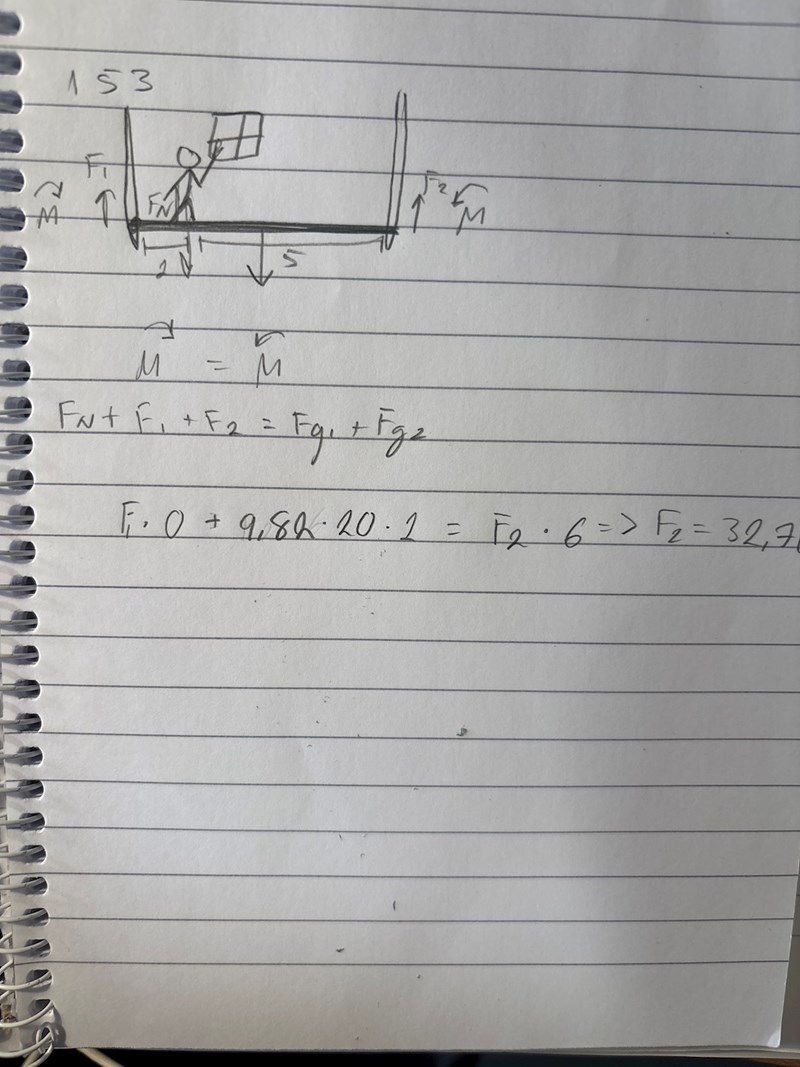 153
F₁
FN
F₂
M
M
1
5
M = M
FN + F₁ + F₂ = Fg₁ + Fg₂
F₁ · 0 + 9,82 · 20 · 1 = F₂ · 6 => F₂ = 32,7